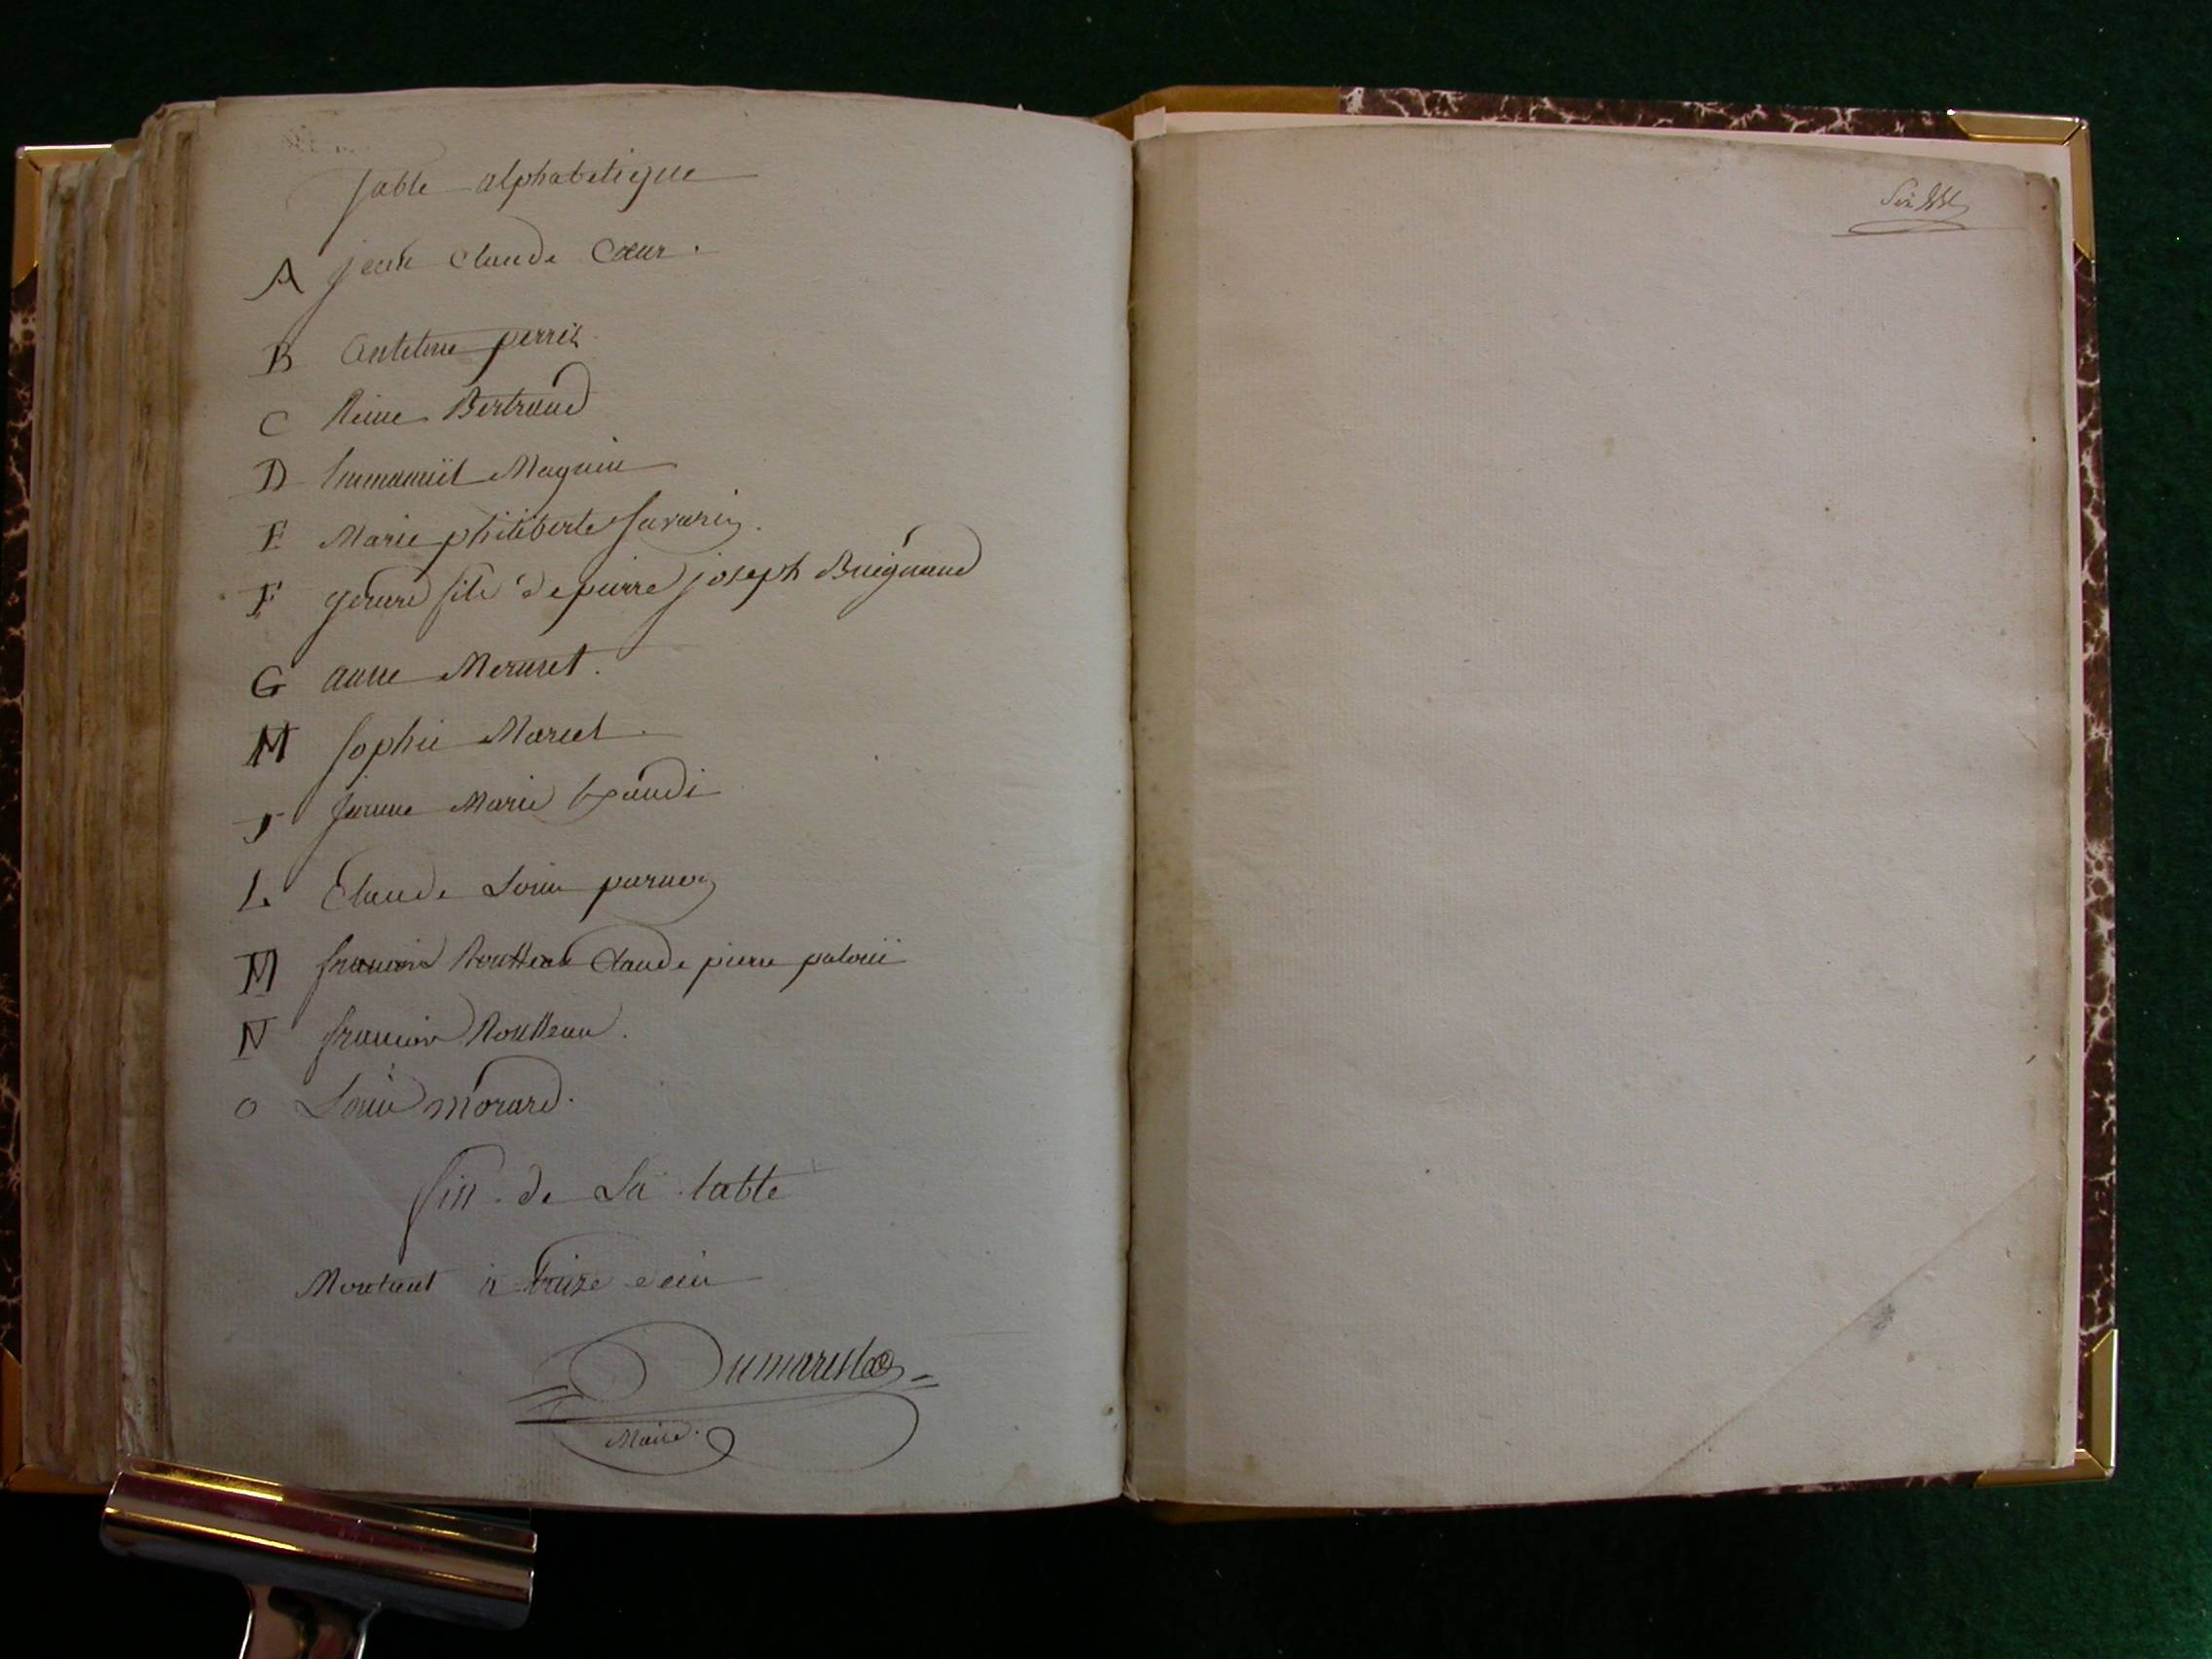 Table alphabetique
A jean Claude Cœur.
B Antelme perrin
C Reine Bertrand
D Emmanuel Magnin
E Marie philiberte Savarin.
F gerard fils de pierre joseph Buignand
G anne Meruret.
M Sophie Marcel.
J Jeanne Marie
L. Claude Louis
M francois Rousseau Claude pierre
N francois Rousseau.
O Louis morard.
fin de La table
Montant à treize
Dumarest
Maire.